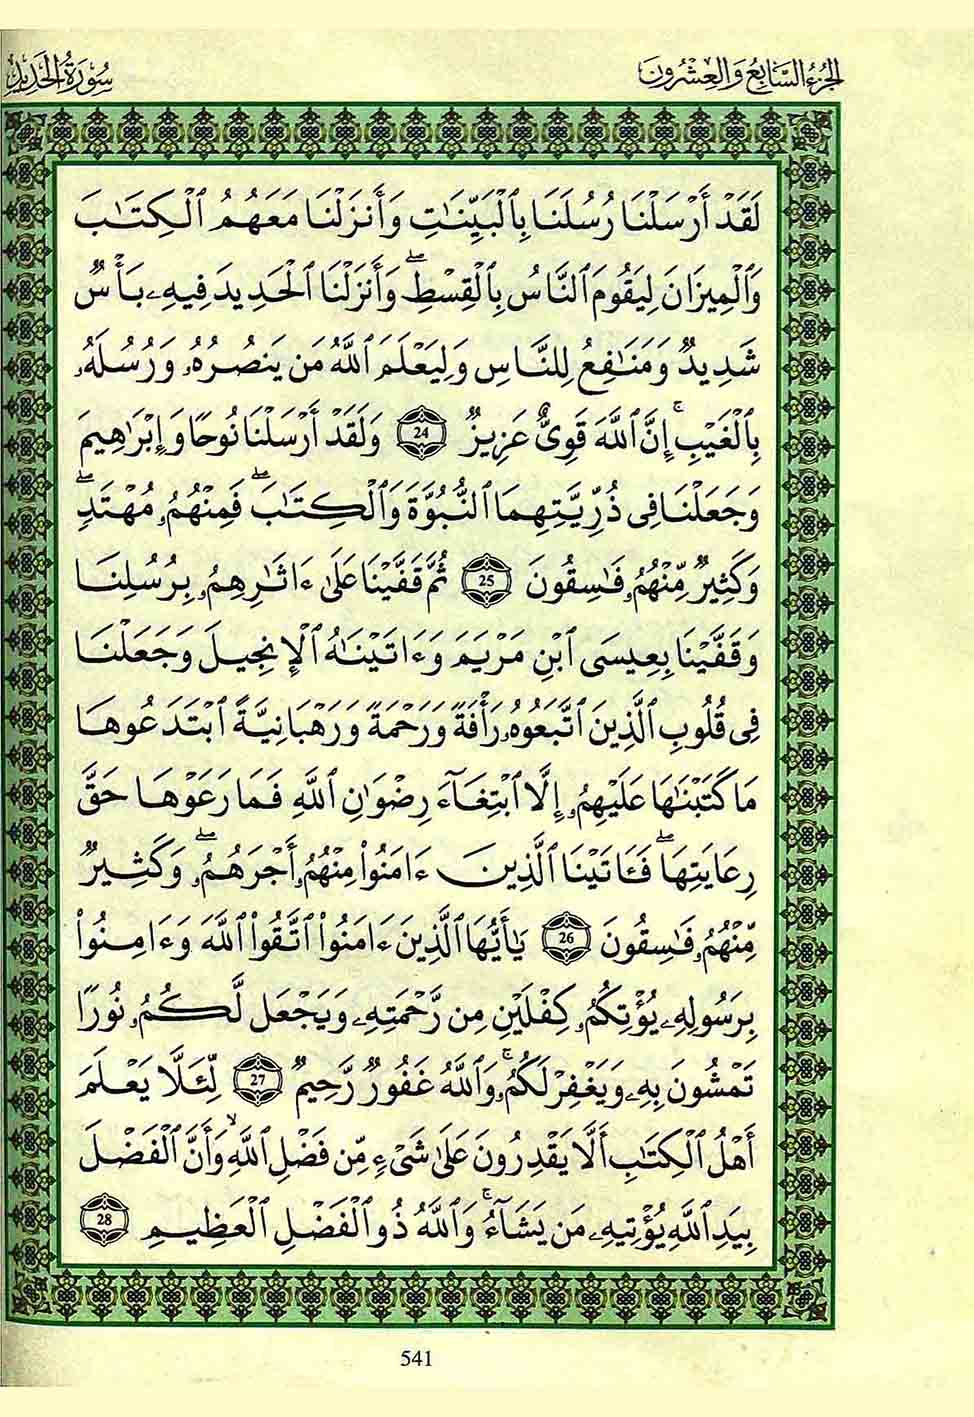 الجزء السابع والعشرون
سورة الحديد
لَقَدْ أَرْسَلْنَا رُسُلَنَا بِالْبَيِّنَٰتِ وَأَنزَلْنَا مَعَهُمُ الْكِتَٰبَ
وَالْمِيزَانَ لِيَقُومَ النَّاسُ بِالْقِسْطِۖ وَأَنزَلْنَا الْحَدِيدَ فِيهِۦ بَأْسٌ
شَدِيدٌ وَمَنَٰفِعُ لِلنَّاسِ وَلِيَعْلَمَ اللَّهُ مَن يَنصُرُهُۥ وَرُسُلَهُۥ
بِالْغَيْبِۚ إِنَّ اللَّهَ قَوِىٌّ عَزِيزٌ 24 وَلَقَدْ أَرْسَلْنَا نُوحًا وَإِبْرَٰهِيمَ
وَجَعَلْنَا فِى ذُرِّيَّتِهِمَا النُّبُوَّةَ وَالْكِتَٰبَۖ فَمِنْهُمُۥ مُهْتَدٍۖ
وَكَثِيرٌ مِّنْهُمُۥ فَٰسِقُونَ 25 ثُمَّ قَفَّيْنَا عَلَىٰ ءَاثَٰرِهِمُۥ بِرُسُلِنَا
وَقَفَّيْنَا بِعِيسَى ابْنِ مَرْيَمَ وَءَاتَيْنَٰهُ الْإِنجِيلَ وَجَعَلْنَا
فِى قُلُوبِ الَّذِينَ اتَّبَعُوهُۥ رَأْفَةً وَرَحْمَةً وَرَهْبَانِيَّةً ابْتَدَعُوهَا
مَا كَتَبْنَٰهَا عَلَيْهِمُۥ إِلَّا ابْتِغَآءَ رِضْوَٰنِ اللَّهِ فَمَا رَعَوْهَا حَقَّ
رِعَايَتِهَاۖ فَـَٔاتَيْنَا الَّذِينَ ءَامَنُوا۟ مِنْهُمُۥ أَجْرَهُمُۥۖ وَكَثِيرٌ
مِّنْهُمُۥ فَٰسِقُونَ 26 يَٰٓأَيُّهَا الَّذِينَ ءَامَنُوا۟ اتَّقُوا۟ اللَّهَ وَءَامِنُوا۟
بِرَسُولِهِۦ يُؤْتِكُمُۥ كِفْلَيْنِ مِن رَّحْمَتِهِۦ وَيَجْعَل لَّكُمُۥ نُورًا
تَمْشُونَ بِهِۦ وَيَغْفِرْ لَكُمُۥۚ وَاللَّهُ غَفُورٌ رَّحِيمٌ 27 لِّئَلَّا يَعْلَمَ
أَهْلُ الْكِتَٰبِ أَلَّا يَقْدِرُونَ عَلَىٰ شَىْءٍ مِّن فَضْلِ اللَّهِۙ وَأَنَّ الْفَضْلَ
بِيَدِ اللَّهِ يُؤْتِيهِۦ مَن يَشَآءُۚ وَاللَّهُ ذُو الْفَضْلِ الْعَظِيمِ 28
541